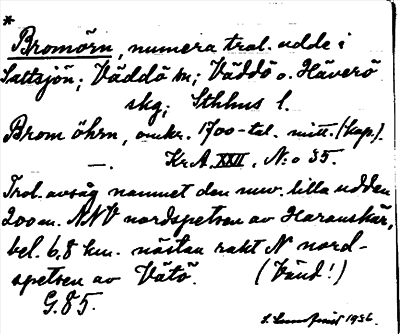 *
Bromörn, numera trol. udde i
Saltsjön; Väddö sn; Väddö o. Häverö
skg; Sthlms l.
Brom öhrn, omkr. 1700-tal. mitt. (kop.).
—. Kr.A. XXII, N:o 35.
Trol. avsåg namnet den nuv. lilla udden
200 m. NNV nordspetsen av Haranskär,
bel. 6,8 km. nästan rakt N nord-
spetsen av Vätö. (Vänd!)
G. 85.
1936.